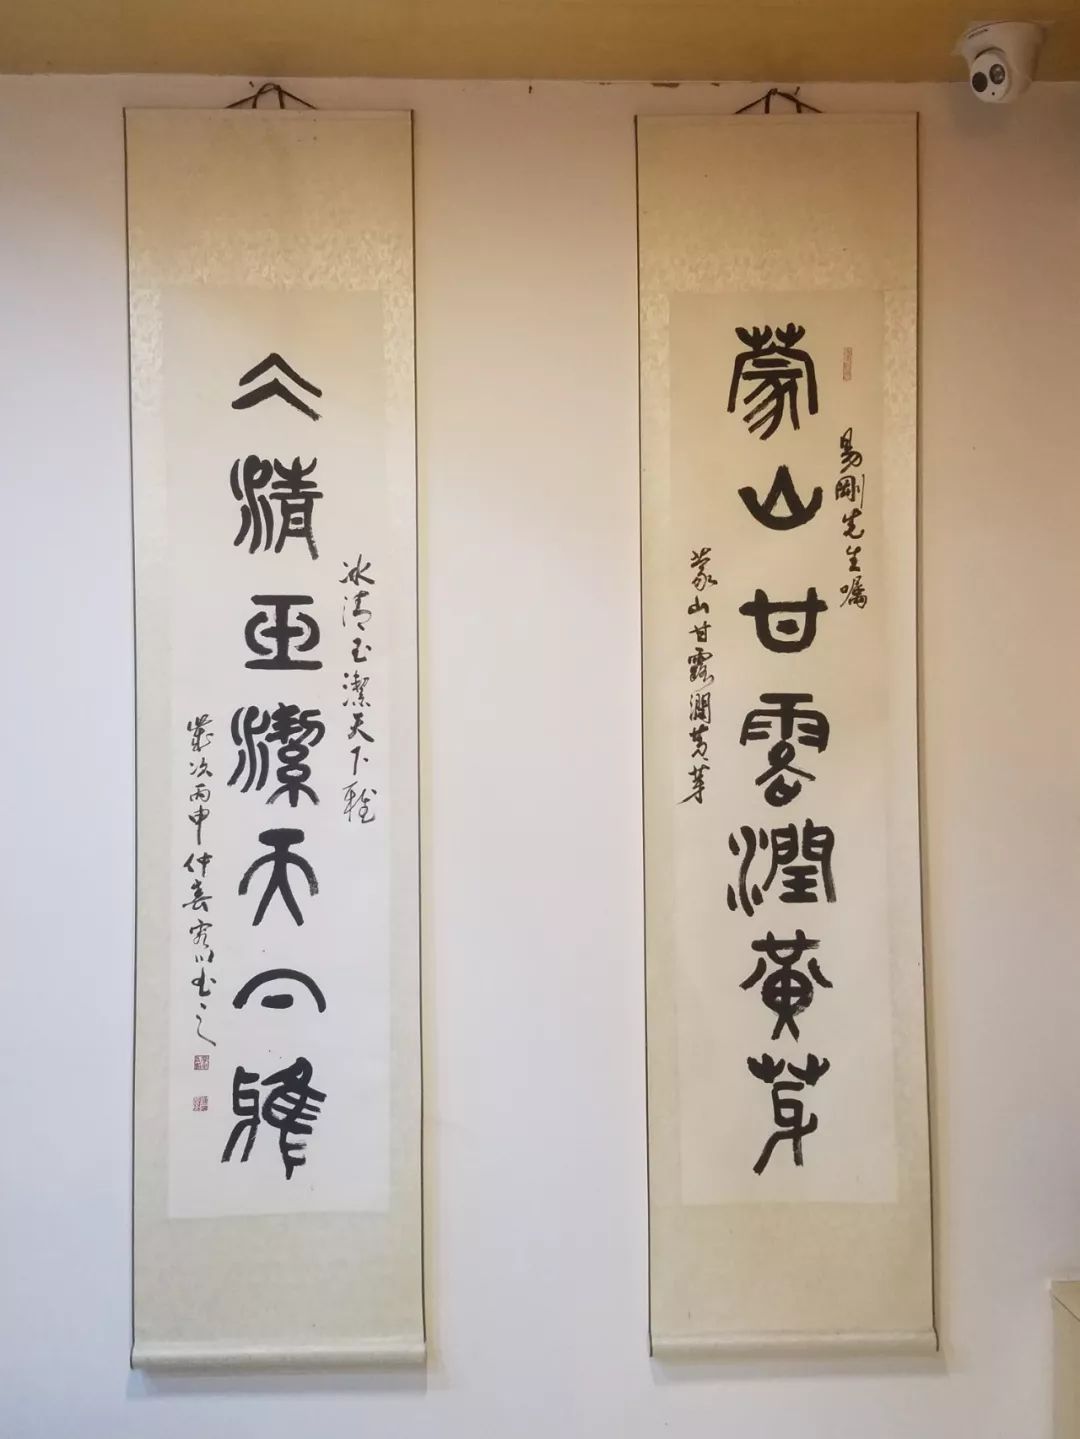 蒙山甘露潤黃芽
易剛先生囑
蒙山甘露潤黃芽
仌清玉潔天下雅
冰清玉潔天下雅
歲次丙申仲春